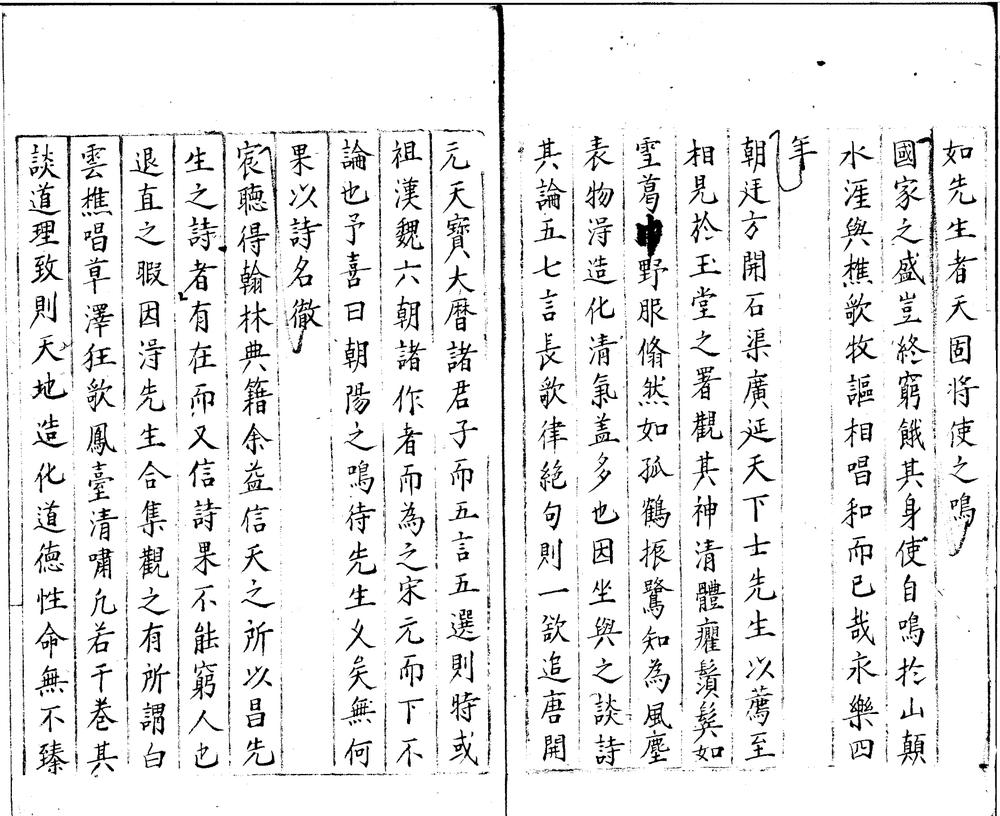 如先生者天固將使之鳴
國家之盛豈終窮餓其身使自鳴於山顛
水涯與樵歌牧謳相唱和而已哉永樂四
年
朝廷方開石渠廣延天下士先生以薦至
相見於玉堂之署觀其神清體癯鬚髮如
雪葛巾野服翛然如孤鶴振鷺知為風塵
表物得造化清氣盖多也因坐與之談詩
其論五七言長歌律絕句則一欲追唐開
元天寶大曆諸君子而五言五選則時或
祖漢魏六朝諸作者而為之宋元而下不
論也予喜曰朝陽之鳴待先生乆矣無何
果以詩名徹
宸聽得翰林典籍余益信天之所以昌先
生之詩者有在而又信詩果不能窮人也
退直之暇因得先生合集觀之有所謂白
雲樵唱草澤狂歌鳳臺清嘯凢若干卷其
談道理致則天地造化道德性命無不臻